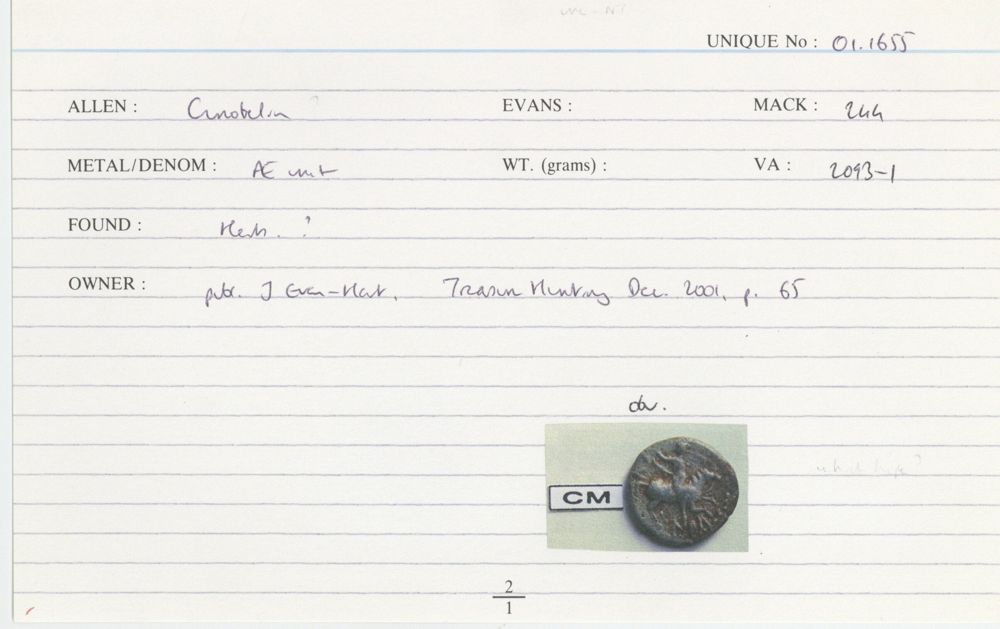 UNIQUE No : 01.1655
ALLEN : Cunobelin ? EVANS : MACK : 244
METAL/DENOM : Æ unit WT. (grams) : VA : 2093-1
FOUND : Herts. ?
OWNER : publ. J Evan-Hart, Treasure Hunting Dec. 2001, p. 65
obv.
CM
which type?
2
1